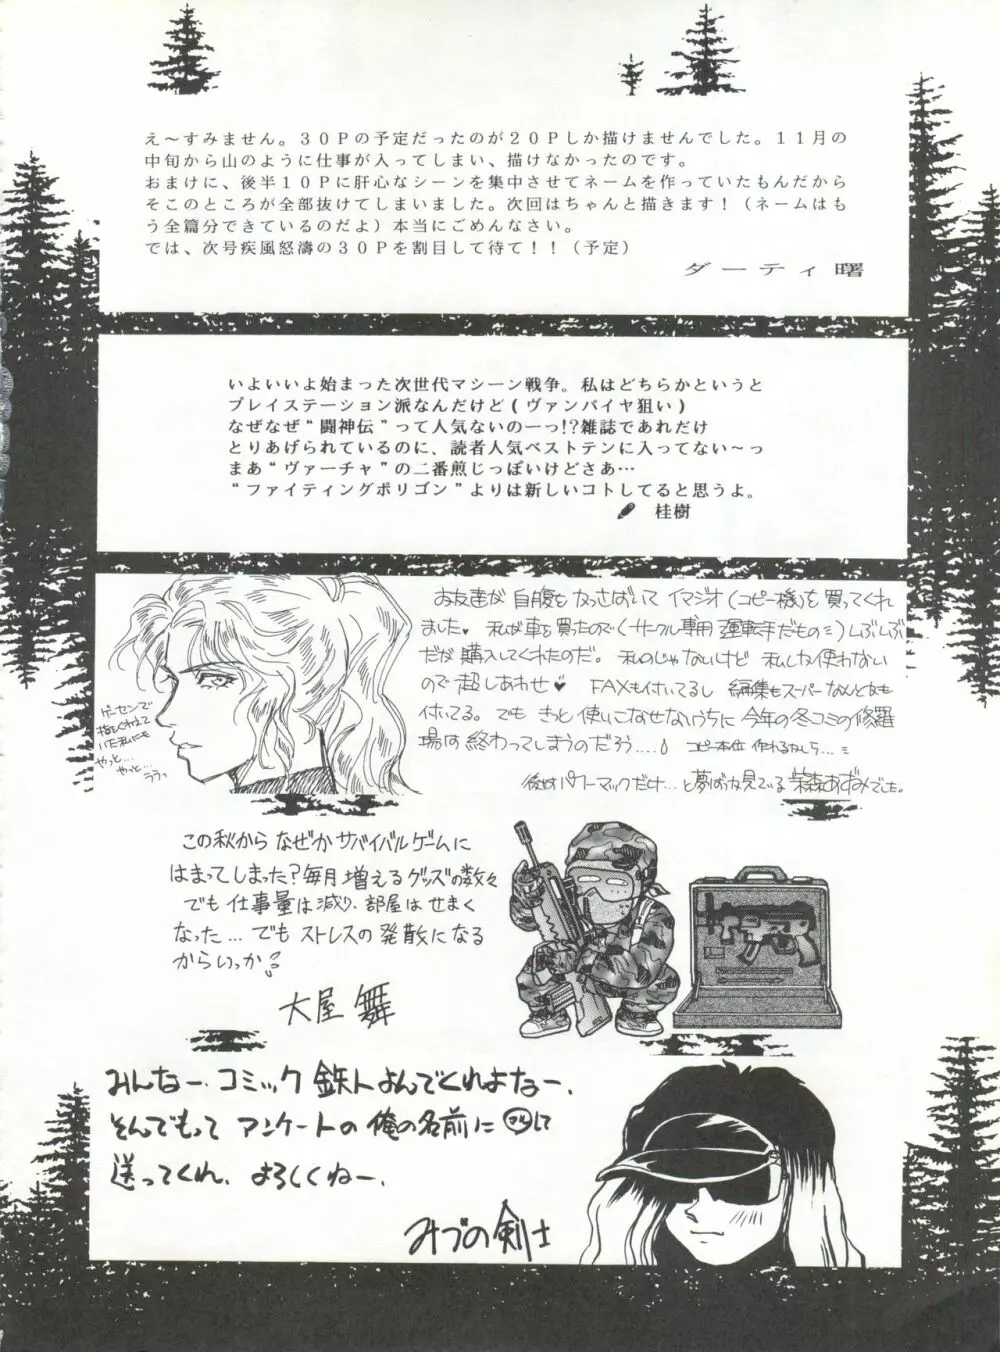 え～すみません。３０Ｐの予定だったのが２０Ｐしか描けませんでした。１１月の
中旬から山のように仕事が入ってしまい、描けなかったのです。
おまけに、後半１０Ｐに肝心なシーンを集中させてネームを作っていたもんだから
そこのところが全部抜けてしまいました。次回はちゃんと描きます！（ネームはも
う全篇分できているのだよ）本当にごめんなさい。
では、次号疾風怒濤の３０Ｐを割目して待て！！（予定）
ダーティ曙
いよいいよ始まった次世代マシーン戦争。私はどちらかというと
プレイステーション派なんだけど(ヴァンパイヤ狙い)
なぜなぜ“闘神伝”って人気ないのーっ!?雑誌であれだけ
とりあげられているのに、読者人気ベストテンに入ってない～っ
まあ“ヴァーチャ”の二番煎じっぽいけどさあ…
“ファイティングポリゴン”よりは新しいコトしてると思うよ。
桂樹
お友達が自腹をかっさばいてイマジオ(コピー機)を買ってくれ
ました♥私が車を買ったので(サークル専用運転手だもの)しぶしぶ
だが購入してくれたのだ。私のじゃないけど私しか使わない
ので超しあわせ♥FAXも付いてるし編集もスーパーなんとかも
付いてる。でもきっと使いこなせないうちに今年の冬コミの修羅
場は終わってしまうのだろう....。コピー本位作れるかしら...
後はパワーマックだけ...と夢ばっか見ている栄森あずみでした。
ゲーセンで
指をくわえて
いた私にも
やっと…
やっと…
ううっ
この秋からなぜかサバイバルゲームに
はまってしまった?毎月増えるグッズの数々
でも仕事量は減り、部屋はせまく
なった...でもストレスの発散になる
からいっか
大屋舞
みんなー、コミック鉄人よんでくれよなー、
そんでもってアンケートの俺の名前に して
送ってくれ、よろしくねー、
みづの剣士